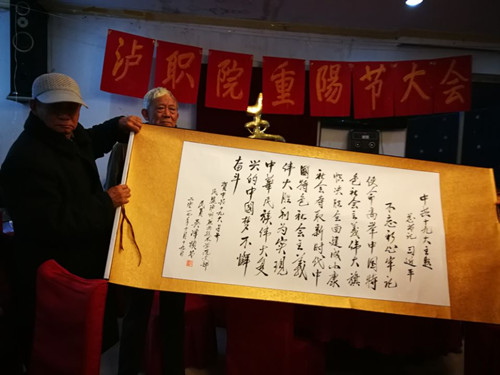 泸职院重陽节大会
中共十九大主题
总书记 习近平
不忘初心牢记
使命高举中国特
色社会主义伟大旗
帜决胜全面建成小康
社会夺取新时代中
国特色社会主义
伟大胜利为实现
中華民族伟大复
兴的中国梦不懈
奋斗